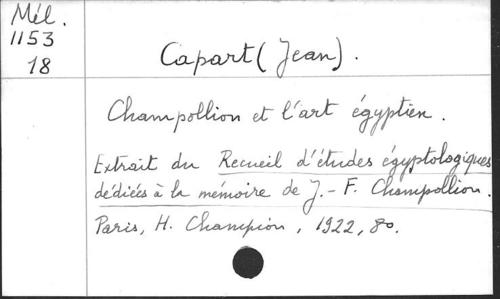 Mél.
1153
18
Capart (Jean).
Champollion et l'art égyptien.
Extrait du Recueil d'études égyptologiques
dédiées à la mémoire de J.-F. Champollion.
Paris, H. Champion, 1922, 8o.